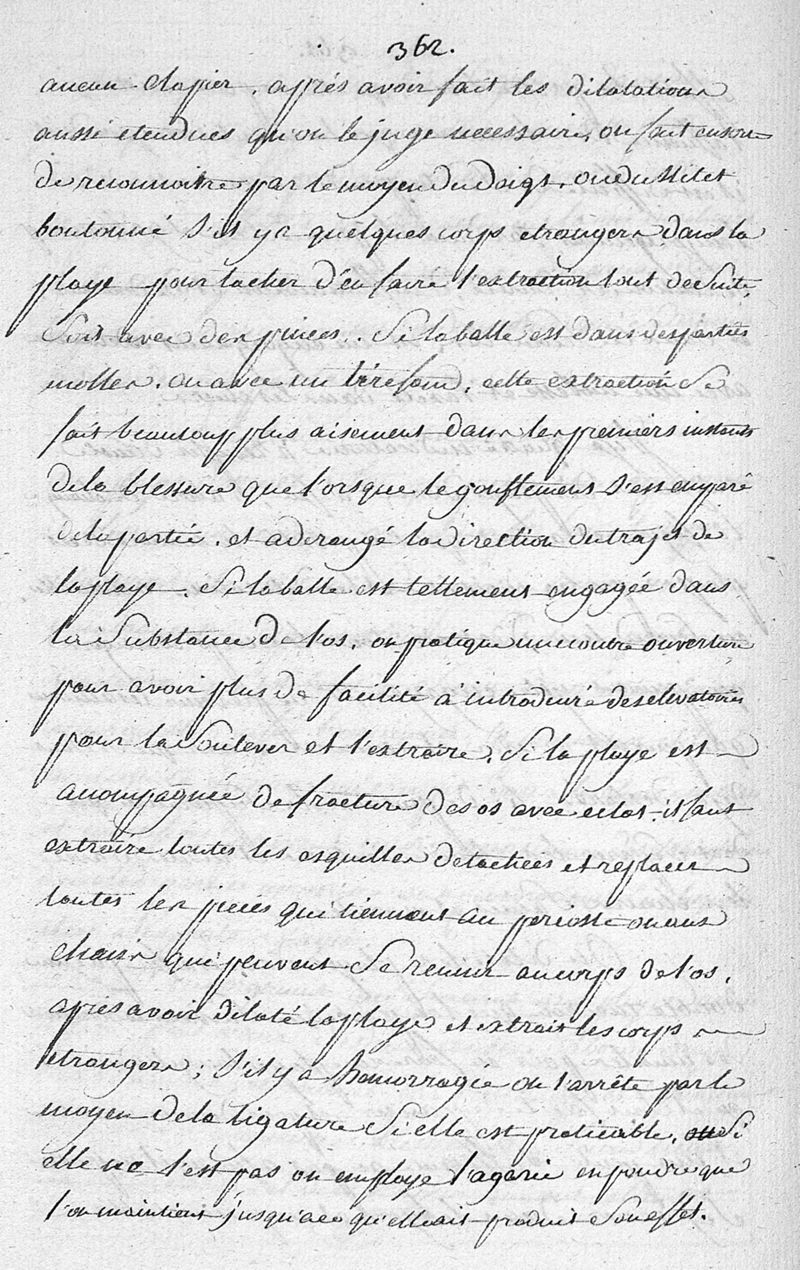 362.
aucun clapier. aprés avoir fait les dilatations
aussi etendues qu'on le juge necessaire, on fait ensorte
de reconnoitre par le moyen du doigt, ou du stilet
boutonné s'il y a quelques corps etrangers dans la
playe pour tacher d'en faire l'extraction tout de suite,
soit avec des pinces. Si la balle est dans des parties
molles. ou avec un tirefond, cette extraction se
fait beaucoup plus aisement dans les premiers instants
de la blessure que lorsque le gonflement s'est emparé
de la partie. et a derangé la direction du trajet de
la playe. Si la balle est tellement engagée dans
la substance de l'os, on pratique un contre ouverture
pour avoir plus de facilité a introduire des elevatoires
pour la soulever et l'extraire, Si la playe est
accompagnée de fracture des os avec eclat il faut
extraire toutes les esquilles detachées et replacer
toutes les pieces qui tiennent au perioste ou aux
chairs qui peuvent se reunir au corps de l'os.
aprés avoir dilaté la playe et extrait les corps
etrangers; s'il y a hemorragie on l'arrête par le
moyen de la ligature si elle est praticable, si
elle ne l'est pas on employe l'agaric en poudre que
l'on maintient jusqu'a ce qu'elle ait produit son effet.